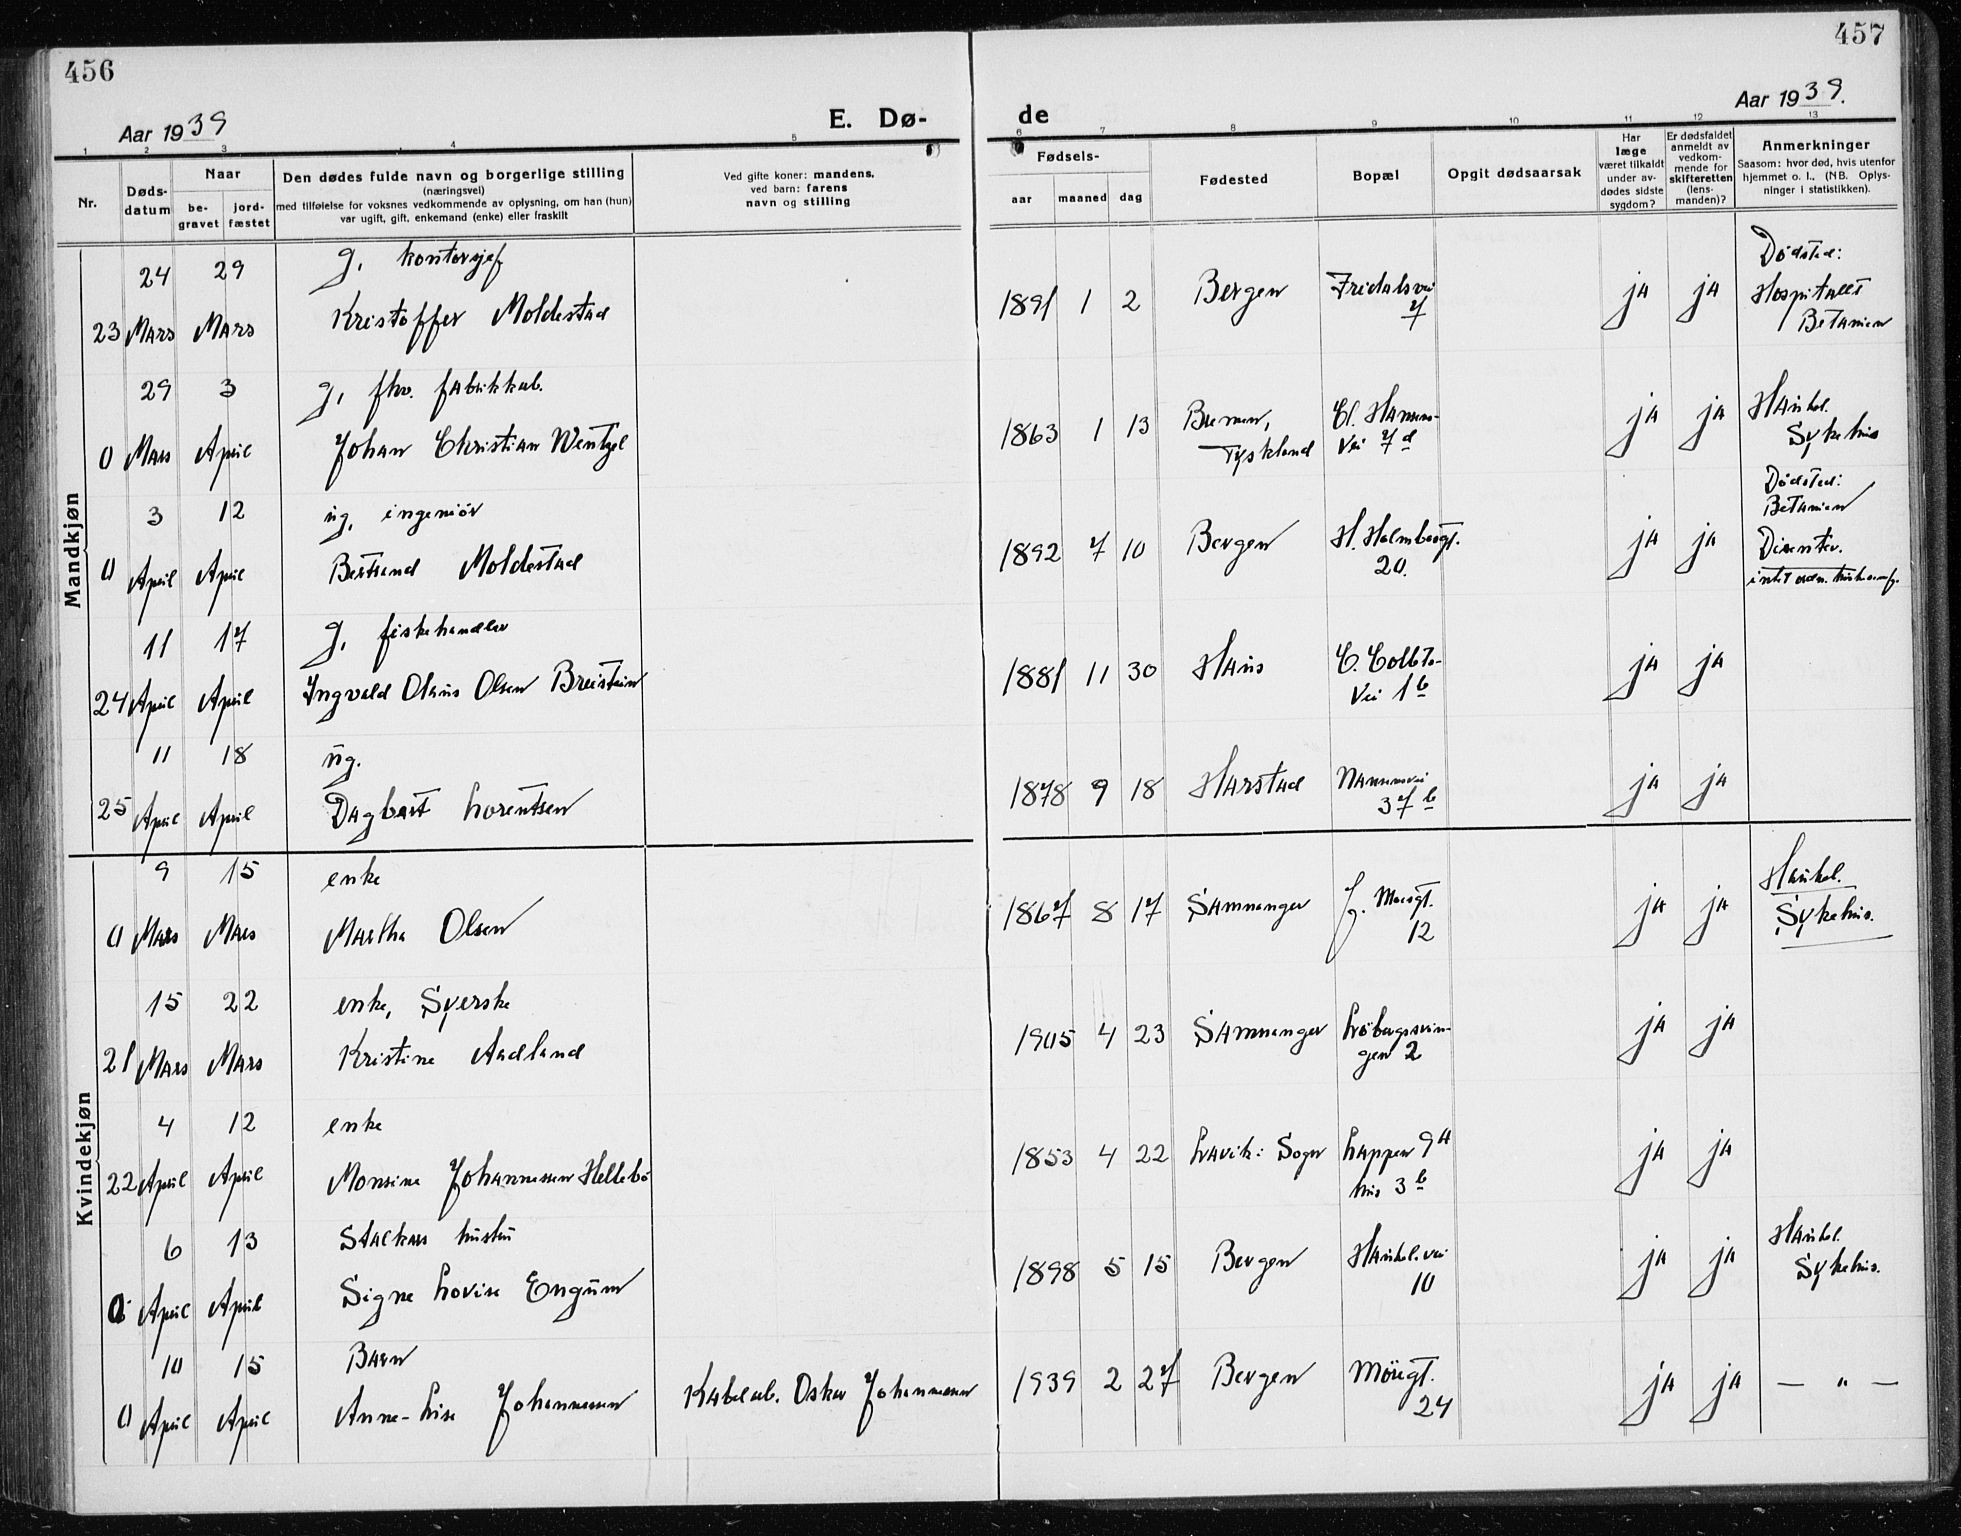 456
457
Aar 1939
E. Dø-
de
Aar 1939.
1 2 3 4 5 6 7 8 9 10 11 12 13
Nr.
Døds-
datum
Naar
be-
gravet
jord-
fæstet
Den dødes fulde navn og borgerlige stilling
(næringsvei)
med tilføielse for voksnes vedkommende av oplysning, om han (hun)
var ugift, gift, enkemand (enke) eller fraskilt
Ved gifte koner: mandens,
ved barn: farens
navn og stilling
Fødsels-
aar maaned dag
Fødested
Bopæl
Opgit dødsaarsak
Har
læge
været tilkaldt
under av-
dødes sidste
sygdom?
Er dødsfaldet
anmeldt av
vedkom-
mende for
skifteretten
(lens-
manden)?
Anmerkninger
Saasom: hvor død, hvis utenfor
hjemmet o. l., (NB. Oplys-
ninger i statistikken).
Mandkjøn
24 29 g, kontorsjef Dødsted:
23 Mars Mars Kristoffer Moldestad 1891 1 2 Bergen Fridalsvei ja ja Hospitalet
7 Betanien
29 3 g, fhv. fabrikkab. Cl. Hansens- Haukel.
0 Mars April Johan Christian Wentzel 1863 1 13 Bremen, Vei 7d ja ja Sykehus
Tyskland
3 12 ug, ingeniör Dødsted:
Betanien
0 April April Bertrand Moldestad 1892 7 10 Bergen H. Holmboegt. ja ja Disenter.
20. intet
11 17 g, fiskehandler
24 April April Ingvald Olaus Olsen Breistein 1881 11 30 Haus C. Colbto- ja ja
Vei 1b
11 18 ug.
25 April April Dagbart Lorentsen 1878 9 18 Harstad Nansensvei ja ja
37 b
Kvindekjøn
9 15 enke Haukel.
0 Mars Mars Martha Olsen 1867 8 17 Samnanger J. Meisgt. ja ja Sykehus.
12
15 22 enke, Syerske
21 Mars Mars Kristine Aadland 1905 4 23 Samnanger Løbergssvin- ja ja
gen 2
4 12 enke
22 April April Monsine Johannessen Hellebö 1853 4 22 Lavik: Sogn Lappen 9 ja ja
hus 3 b
6 13 Stalkars hustru Haukel.
0 April April Signe Lovise Engum 1898 5 15 Bergen Haukel.vei ja ja Sykehus.
10
10 15 Barn
0 April April Anne-Lise Johannessen Kabelab. Oskar Johannessen 1939 2 27 Bergen Möregt. ja ja — " —
24